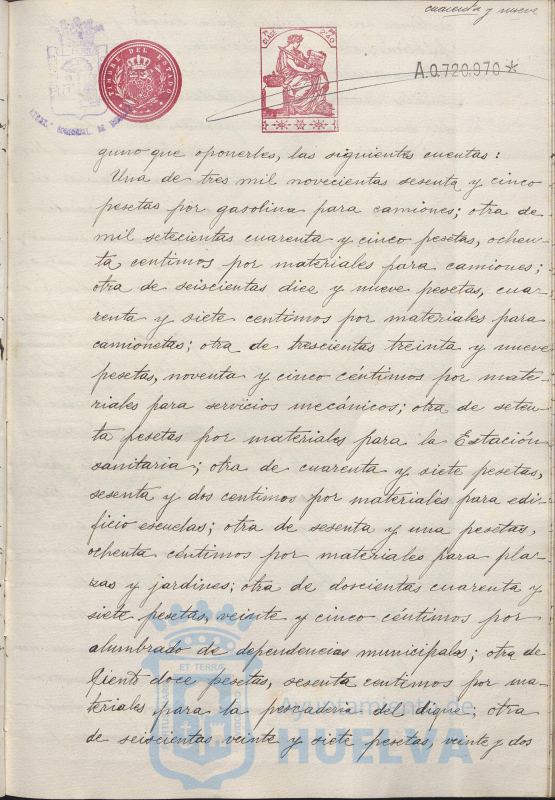 cuarenta y nueve
TIMBRE DEL ESTADO
A.0.720.970 *
guno que oponerles, las siguientes cuentas:
Una de tres mil novecientas sesenta y cinco
pesetas por gasolina para camiones; otra de
mil setecientas cuarenta y cinco pesetas, ochen-
ta centimos por materiales para camiones;
otra de seiscientas diez y nueve pesetas, cua-
renta y siete centimos por materiales para
camionetas; otra de trescientas treinta y nueve
pesetas, noventa y cinco céntimos por mate-
riales para servicios mecánicos; otra de seten-
ta pesetas por materiales para la Estación
sanitaria; otra de cuarenta y siete pesetas,
sesenta y dos centimos por materiales para edi-
ficio escuelas; otra de sesenta y una pesetas,
ochenta céntimos por materiales para pla-
zas y jardines; otra de doscientas cuarenta y
siete pesetas, veinte y cinco céntimos por
alumbrado de dependencias municipales; otra de
ciento doce pesetas, sesenta centimos por ma-
teriales para la pescaderia del dique; otra
de seiscientas veinte y siete pesetas, veinte y dos
ET TERRÆ
Ayuntamiento de
HUELVA